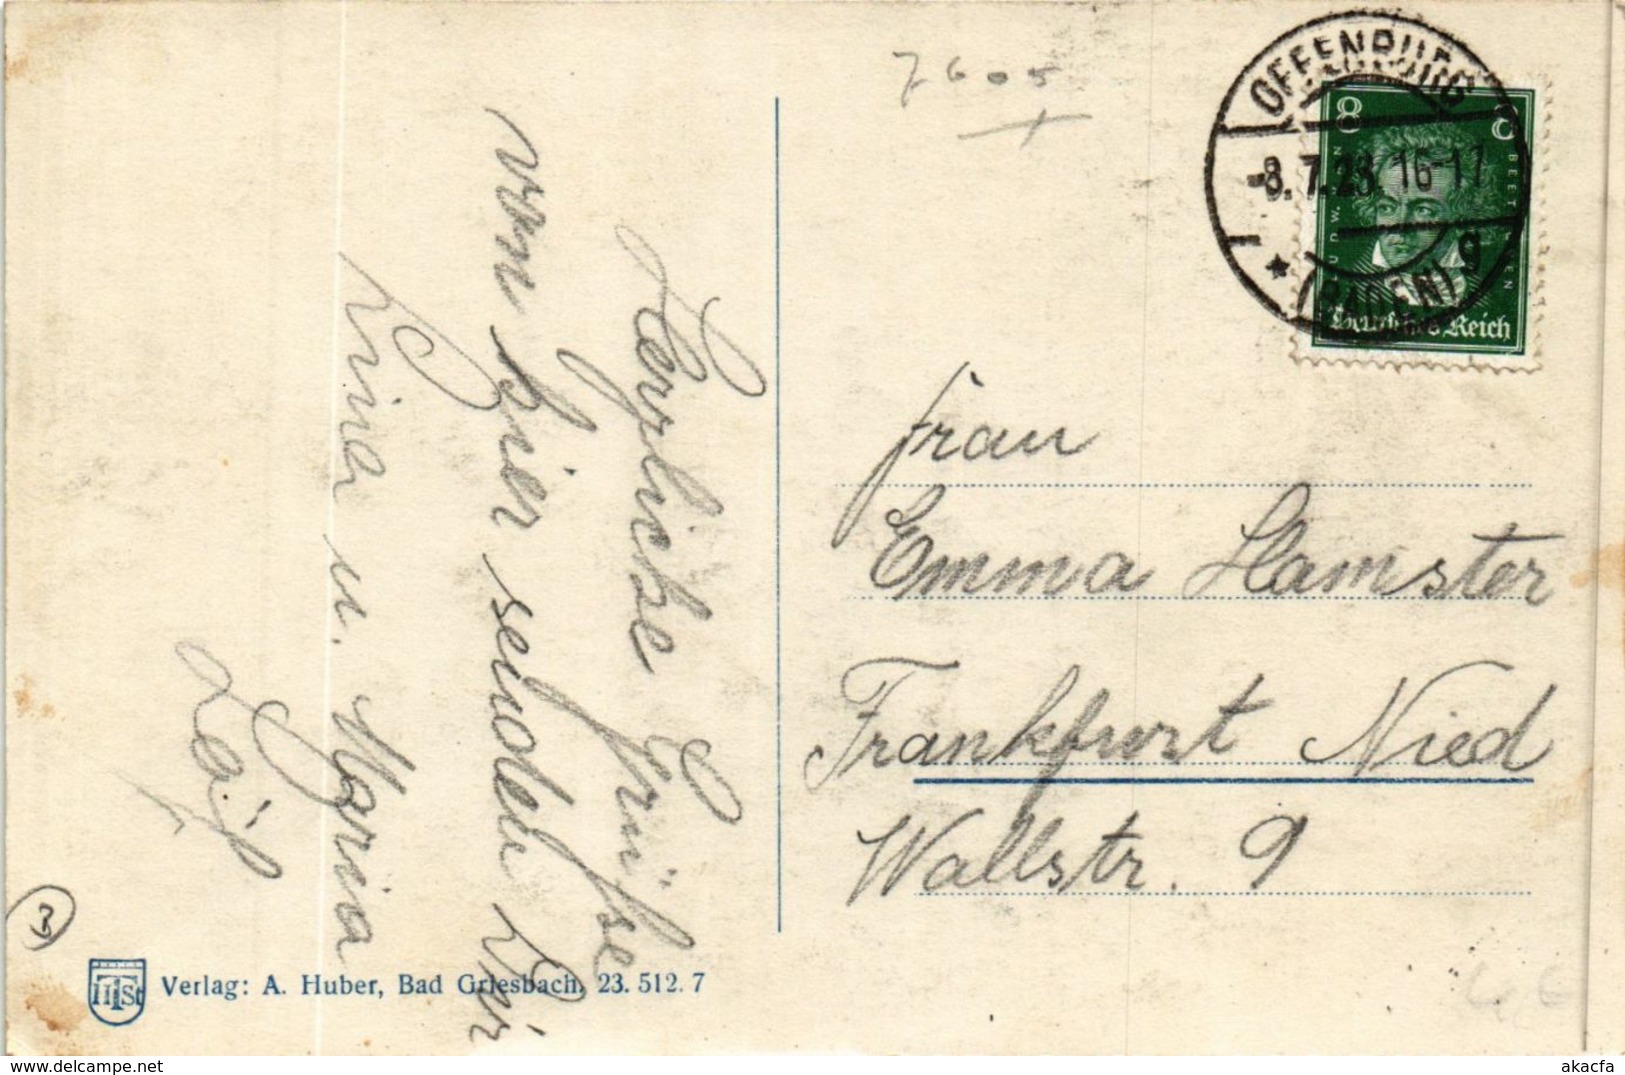 7605
OFFENBURG
-8.7.28. 16-17
* (BADEN) g
8 8
LUDW. VAN BEETHOVEN
Deutsches Reich
Herzliche Grüsse
von hier senden Dir
Lina u. Maria
Frau
Emma Hamster
Frankfurt Nied
Wallstr. 9
3
Verlag: A. Huber, Bad Griesbach. 23. 512. 7
akacfa